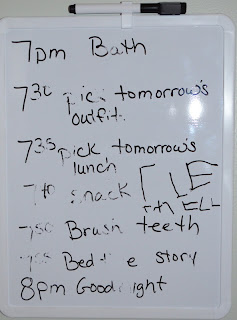 7pm Bath
7:30 pick tomorrow's
outfit
7:35 pick tomorrow's
lunch
7:40 snack
7:50 Brush teeth
7:55 Bedtime story
8pm Goodnight